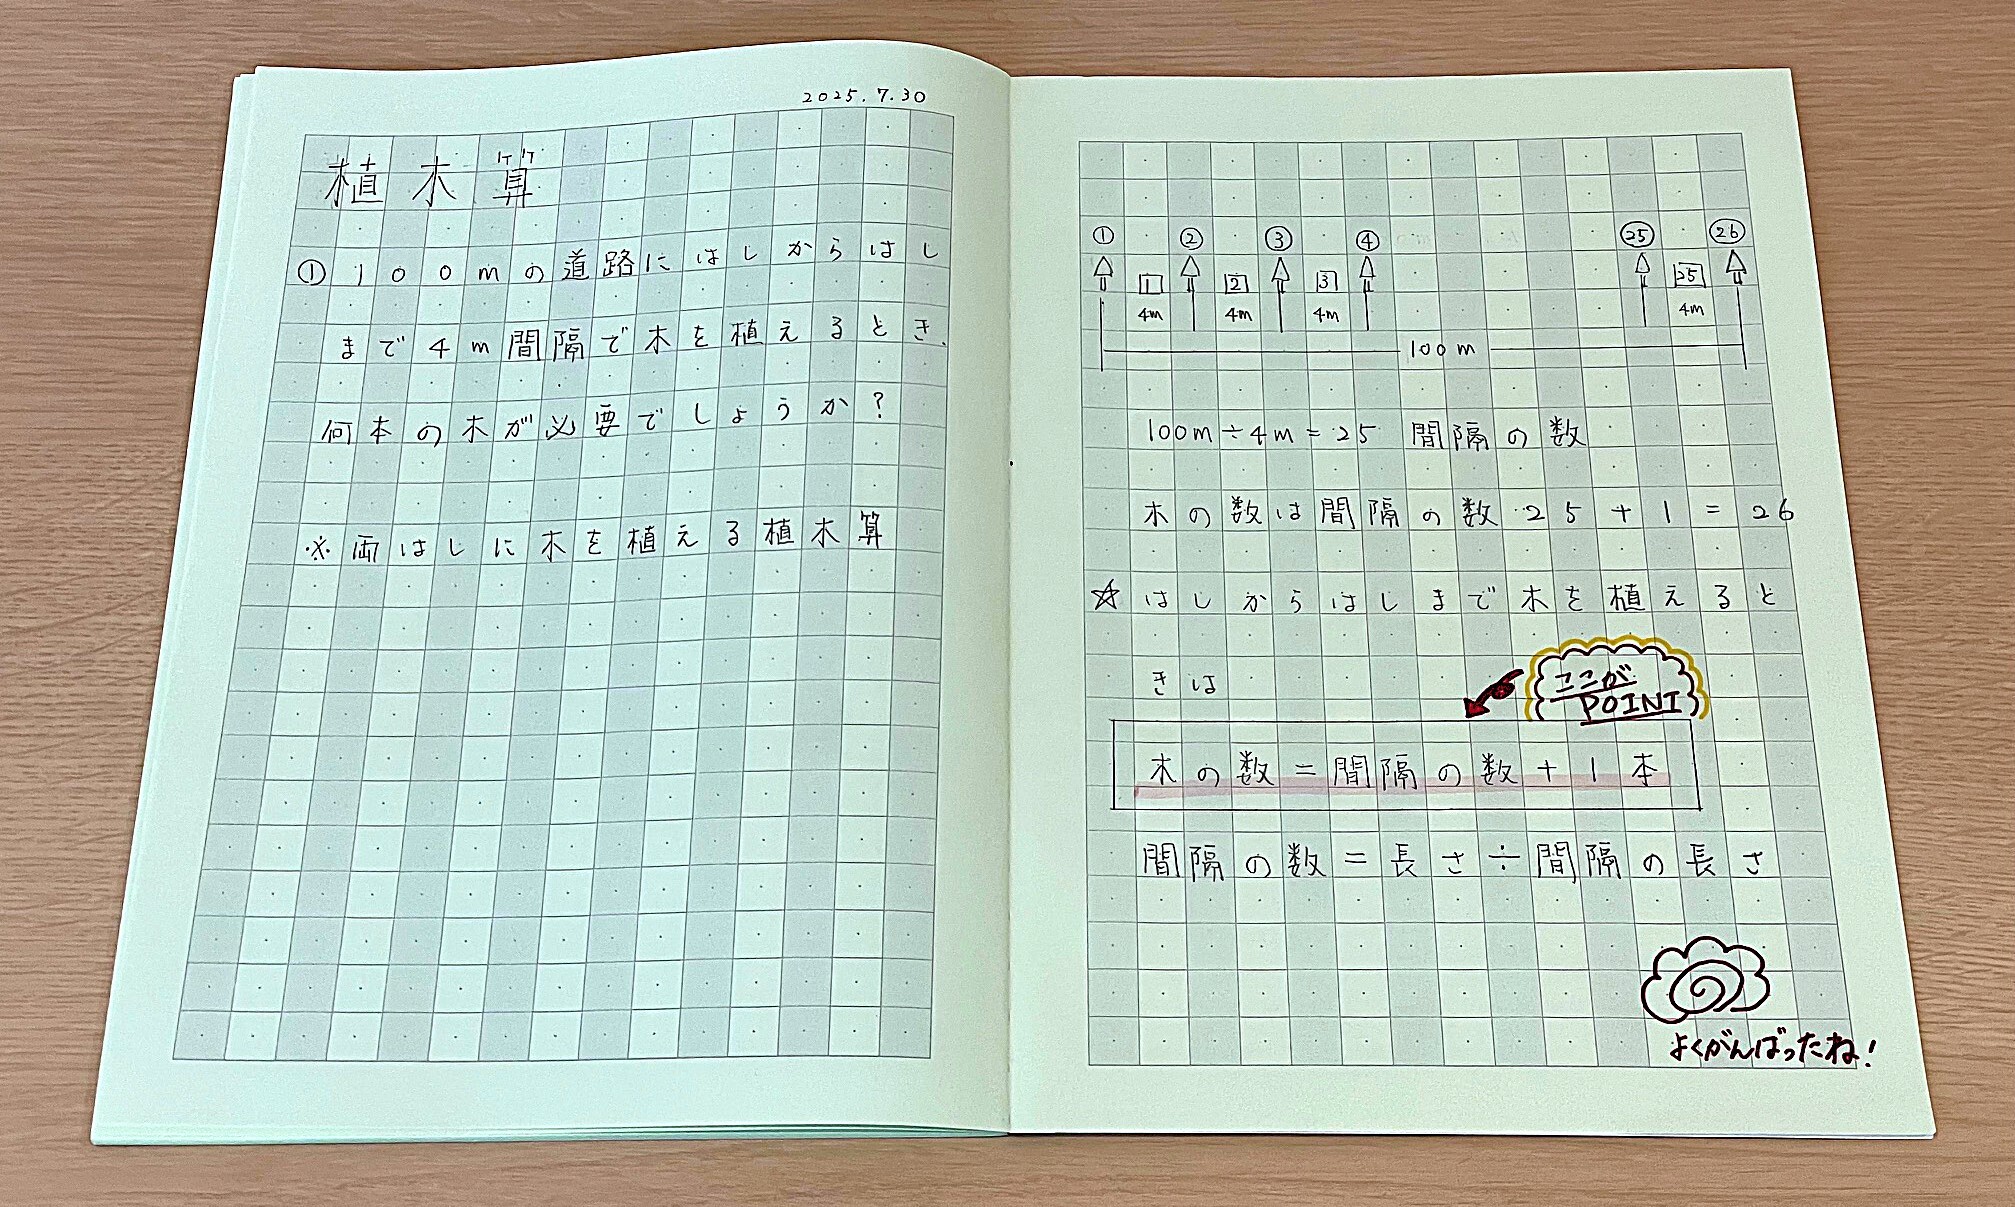 2025.7.30
植木算
① 100mの道路にはしからはし
まで4m間隔で木を植えるとき、
何本の木が必要でしょうか?
※両はしに木を植える植木算
① ② ③ ④ ㉕ ㉖
1 2 3 25
4m 4m 4m 4m
100m
100m÷4m=25 間隔の数
木の数は間隔の数25+1=26
☆はしからはしまで木を植えると
きは
ここが
POINT
木の数=間隔の数+1本
間隔の数=長さ÷間隔の長さ
よくがんばったね!